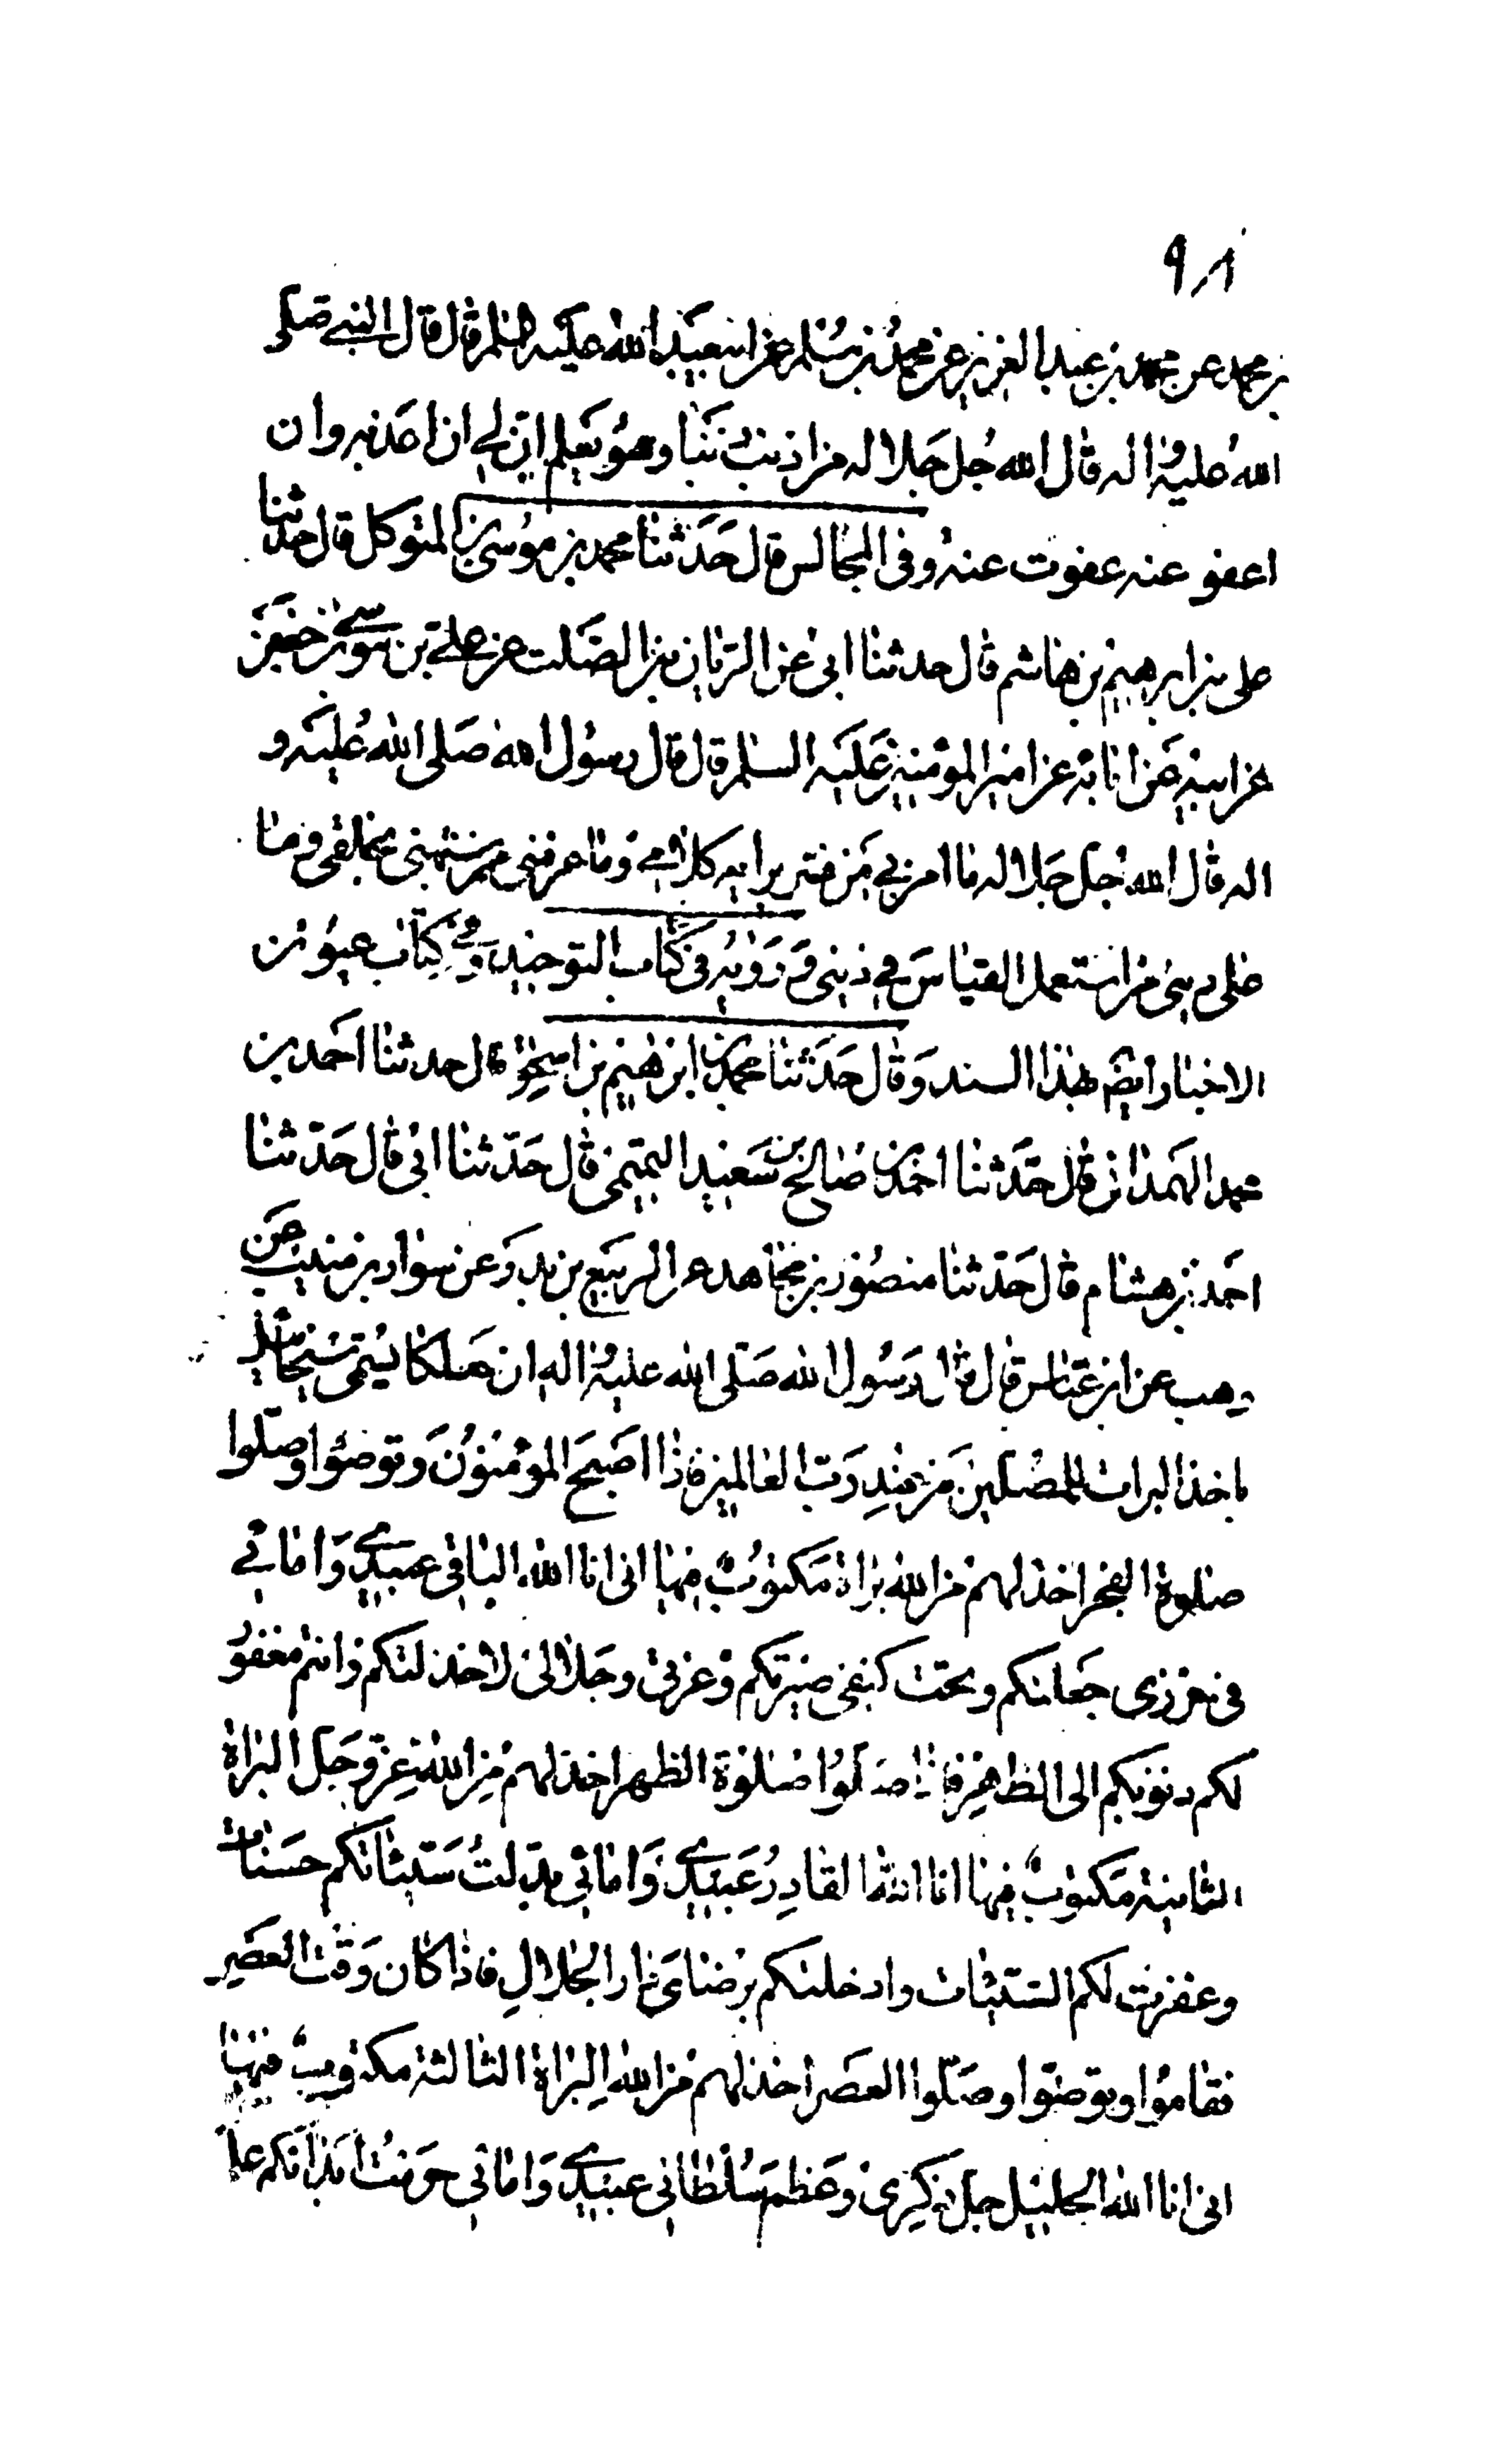 بن محمد عن محمد بن عبد العزيز عن محمد بن مسلم عن ابى عبد الله عليه السلم قال قال النبى صلى
الله عليه واله قال الله جل جلاله من اذنب ذنبا وهو يعلم ان لى ان اعذبه وان
اعفو عنه عفوت عنه وفى المجالس قال حدثنا محمد بن موسى بن المتوكل قال حدثنا
على بن ابرهيم بن هاشم قال حدثنا ابى عن الريان بن الصلت عن على بن موسى بن جعفر
عن ابيه عن ابائه عن امير المؤمنين عليه السلم قال قال رسول الله صلى الله عليه و
اله قال الله جل جلاله ما امن بى من فسر برايه كلامى وما عرفنى من شبهنى بخلقى وما
على دينى من استعمل القياس فى دينى ورويه فى كتاب التوحيد وفى كتاب عيون
الاخبار ايضا بهذا السند وقال حدثنا محمد بن ابرهيم بن اسحق قال حدثنا احمد بن
محمد الهمدانى قال حدثنا احمد بن صالح بن سعيد التميمى قال حدثنا ابى قال حدثنا
احمد بن هشام قال حدثنا منصور بن مجاهد عن الربيع بن بدر عن سوار بن منيب عن
وهب عن ابن عباس قال قال رسول الله صلى الله عليه واله ان ملكا يسمى سخائيل
ياخذ البرات للمصلين من عند رب العالمين فاذا اصبح المؤمنون وتوضئوا وصلوا
صلوة الفجر اخذ لهم من الله براة مكتوب فيها انى انا الله الباقى عبيدى وامائى
فى حرزى جعلتكم وتحت كنفى صيرتكم وعزتى وجلالى لا خذلتكم وانتم مغفور
لكم ذنوبكم الى الظهر فاذا صلوا صلوة الظهر اخذ لهم من الله عز وجل البراة
الثانية مكتوب فيها انا الله القادر عبيدى وامائى بدلت سيئاتكم حسنات
وغفرت لكم السيئات وادخلتكم برضاى دار الجلال فاذا كان وقت العصر
فقاموا وتوضئوا وصلوا العصر اخذ لهم من الله البراة الثالثة مكتوب فيها
انى انا الله الجليل جل ذكرى وعظم سلطانى عبيدى وامائى حرمت ابدانكم على